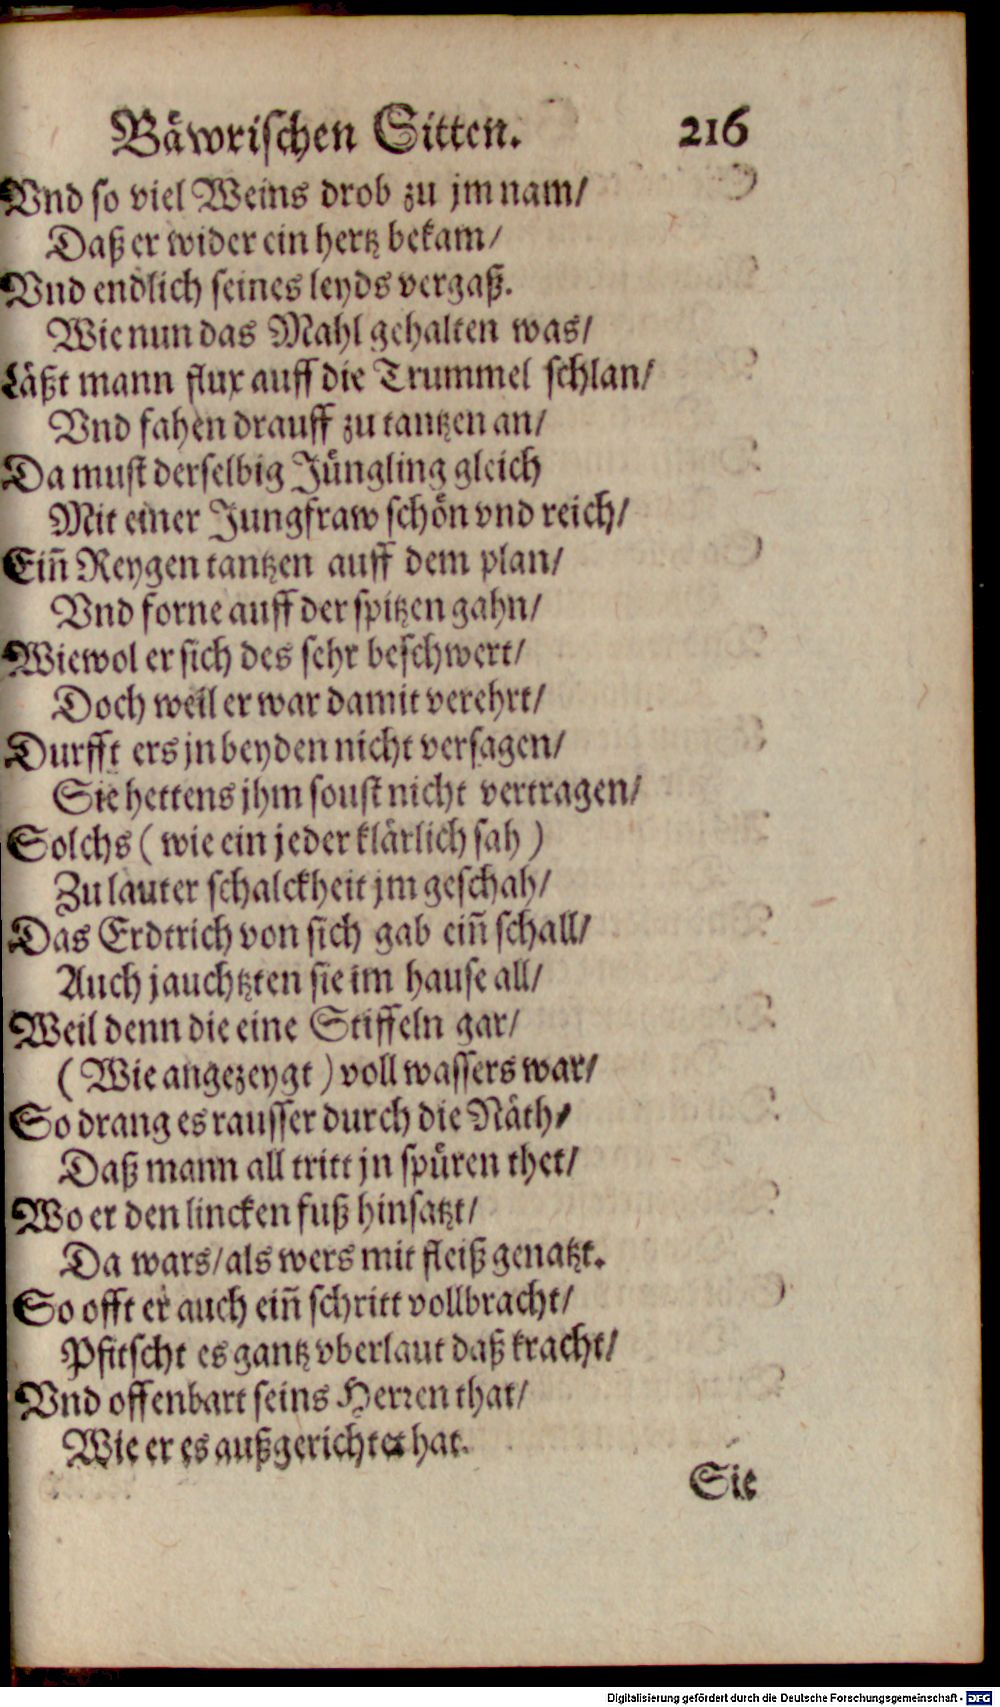 Bäwrischen Sitten. 216
Vnd so viel Weins drob zu jm nam/
Daß er wider ein hertz bekam/
Vnd endlich seines leyds vergaß.
Wie nun das Mahl gehalten was/
Läßt mann flux auff die Trummel schlan/
Vnd fahen drauff zu tantzen an/
Da must derselbig Jüngling gleich
Mit einer Jungfraw schön vnd reich/
Ein̄ Reygen tantzen auff dem plan/
Vnd forne auff der spitzen gahn/
Wiewol er sich des sehr beschwert/
Doch weil er war damit verehrt/
Durfft ers jn beyden nicht versagen/
Sie hettens jhm soust nicht vertragen/
Solchs ( wie ein jeder klärlich sah )
Zu lauter schalckheit jm geschah/
Das Erdtrich von sich gab ein̄ schall/
Auch jauchtzten sie im hause all/
Weil denn die eine Stiffeln gar/
( Wie angezeygt ) voll wassers war/
So drang es rausser durch die Näth/
Daß mann all tritt jn spüren thet/
Wo er den lincken fuß hinsatzt/
Da wars/ als wers mit fleiß genatzt.
So offt er auch ein̄ schritt vollbracht/
Pfitscht es gantz vberlaut daß kracht/
Vnd offenbart seins Herren that/
Wie er es außgerichtet hat.
Sie
Digitalisierung gefördert durch die Deutsche Forschungsgemeinschaft - DFG